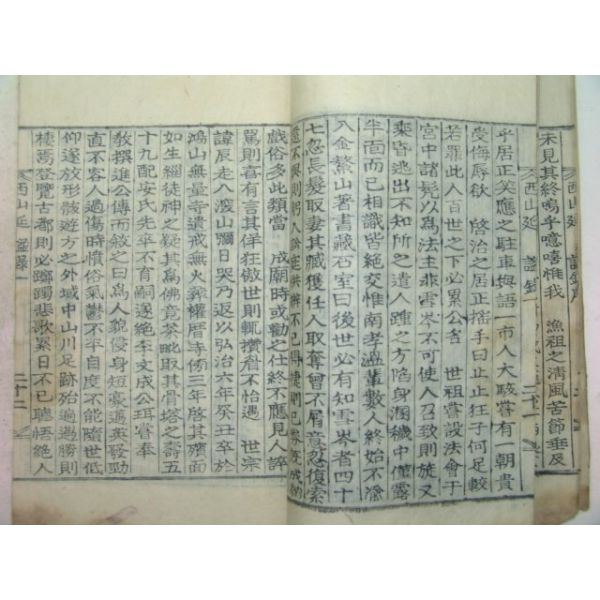 未見其終嗚乎噫嘻惟我 漁祖之清風苦節垂及
西山延 諡錄
乎居正笑應之駐車與語一市人大駭嘗有一朝貴
受侮辱欲 啓治之居正搖手曰止止狂子何足較
若罪此人百世之下必累公名 世祖嘗設法會于
宮中諸髡以爲法主非雲岑不可使人召致則旋又
乘昏逃出不知所之遣人踵之方陷身溷穢中僅露
半面而已相識皆絶交惟南孝溫輩數人終始不渝
入金鰲山著書藏石室曰後世必有知雪岑者四十
七忽長髮取妻其臧獲任人取奪曾不屑意忽復索
戲俗多此類當 成廟時或勸之仕終不應見人誶
罵則喜有言其佯狂傲世則輒攢眉不怡遇 世宗
諱辰走入瀑山
鴻山無量寺遺戒無火葬權厝寺傍三年啓其殯面
如生緇徒神之疑其爲佛竟茶毗取其骨塔之壽五
十九配安氏先卒不再嗣遂絶李文成公珥嘗奉
教撰進公傳而敘之曰爲人貌侵身短清邁英發勁
直不容人過傷時憤俗氣鬱不平自度不能隨世低
仰遂放形骸遊方之外域中山川足跡殆遍遇勝則
棲焉登覽古都則必躑躅悲歌累日不已聰悟絶人
西山延 諡錄 二十二